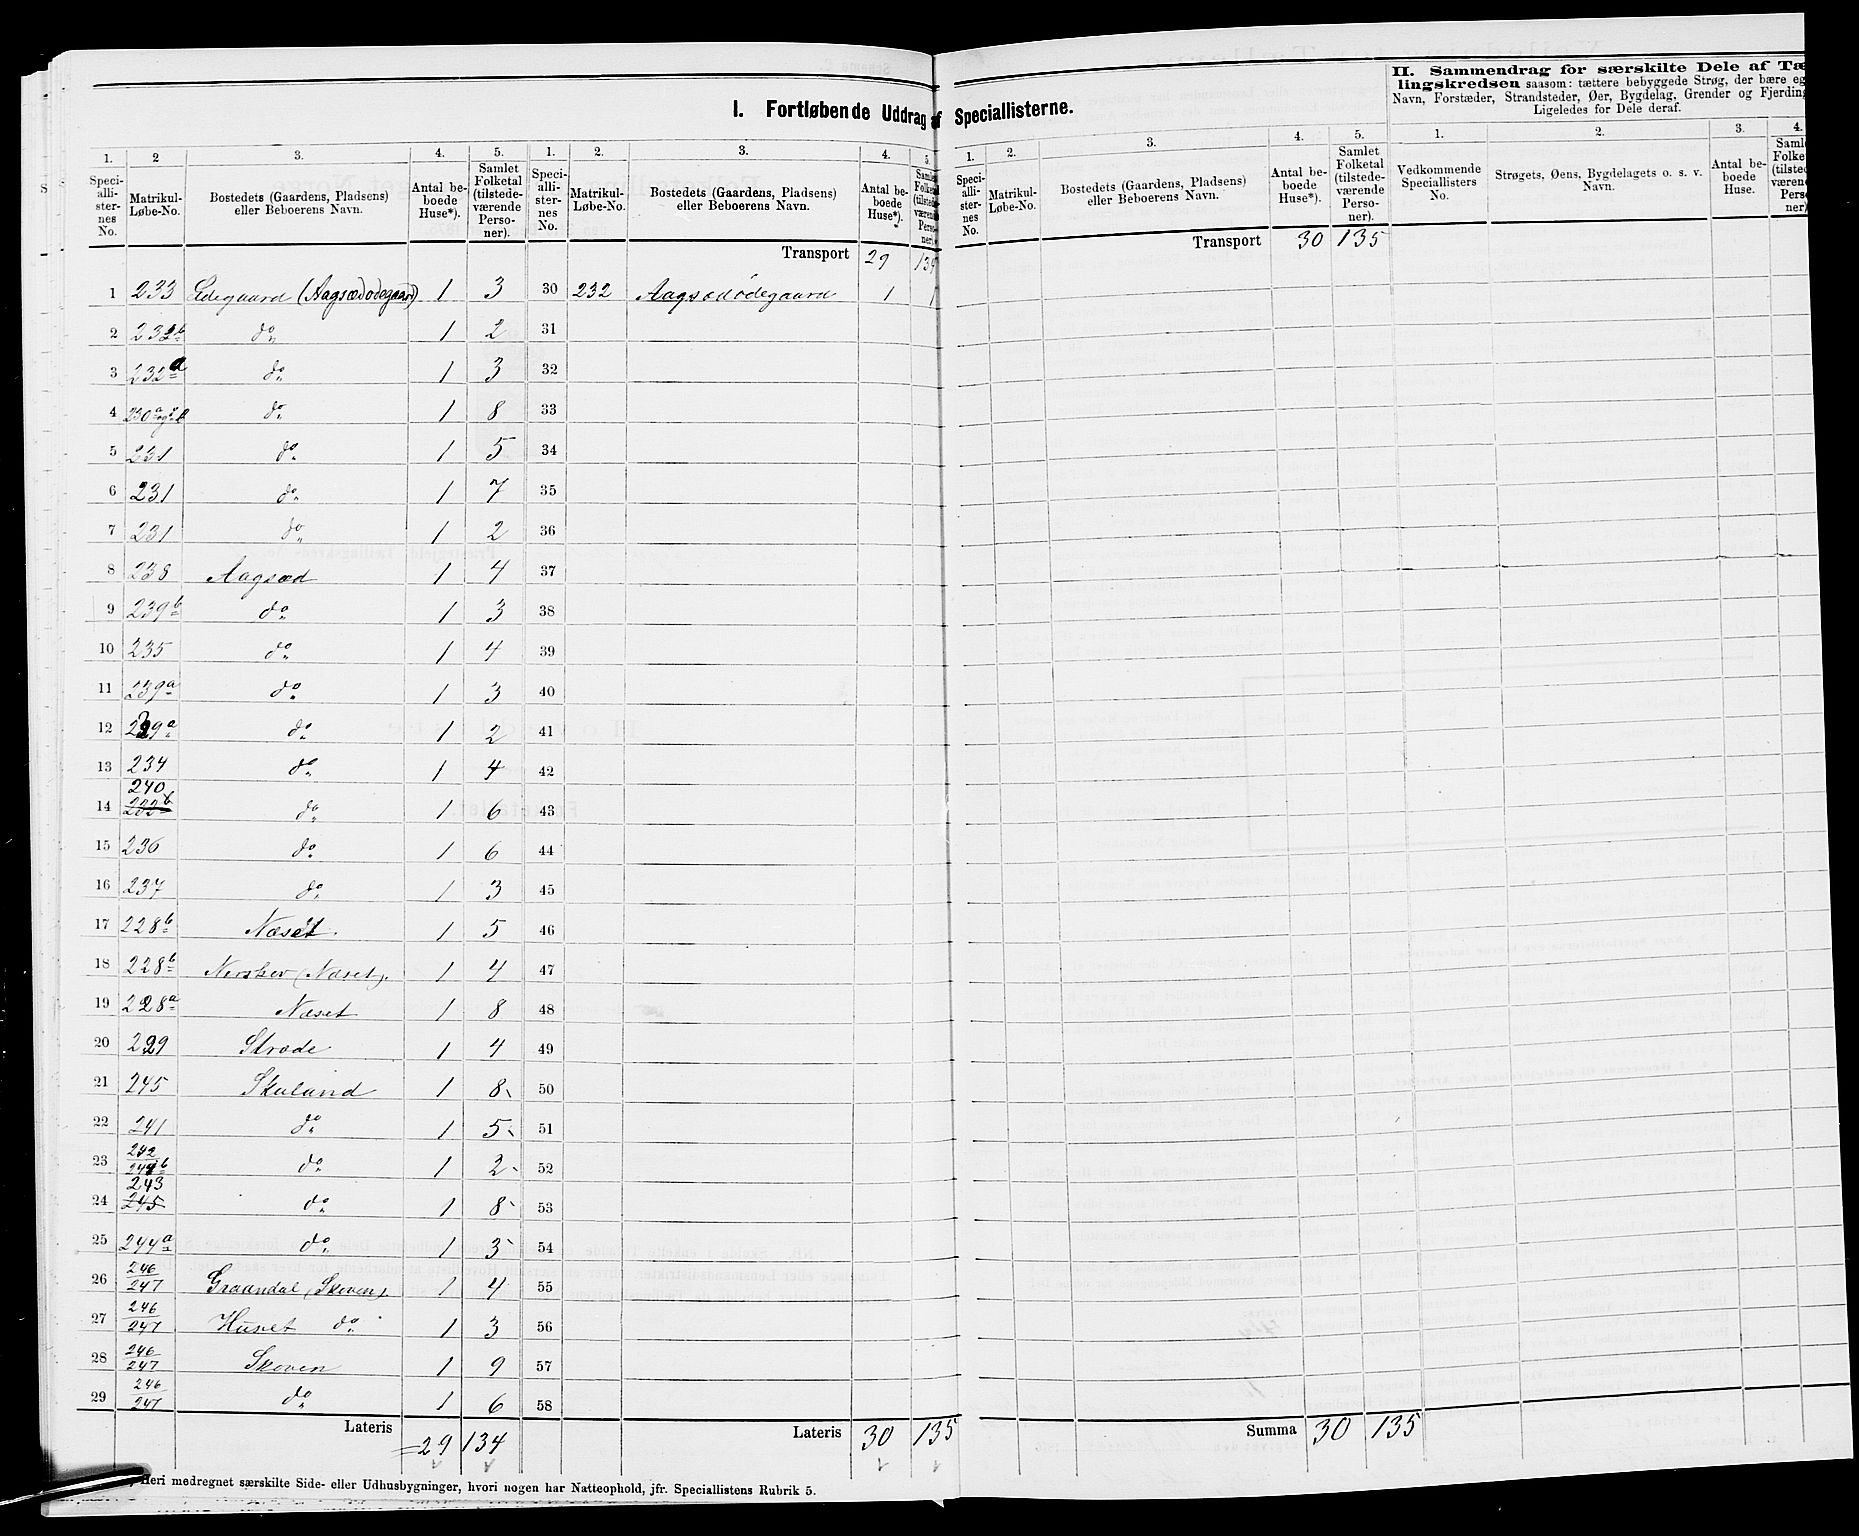 I. Fortløbende Uddrag af Speciallisterne.
II. Sammendrag for særskilte Dele af Tæ
lingskredsen saasom: tættere bebyggede Strøg, der bære eg
Navn, Forstæder, Strandsteder, Øer, Bygdelag, Grender og Fjerding
Ligeledes for Dele deraf.
1. 2 3. 4. 5. 1. 2. 3. 4. 5. 1. 2. 3. 4. 5. 1. 2. 3. 4.
Speciallisternes No. Matrikul-Løbe-No. Bostedets (Gaardens, Pladsens) eller Beboerens Navn. Antal beboede Huse*). Samlet Folketal (tilstedeværende Personer).
Speciallisternes No. Matrikul-Løbe-No. Bostedets (Gaardens, Pladsens) eller Beboerens Navn. Antal beboede Huse*). Samlet Folketal (tilstedeværende Personer).
Speciallisternes No. Matrikul-Løbe-No. Bostedets (Gaardens, Pladsens) eller Beboerens Navn. Antal beboede Huse*). Samlet Folketal (tilstedeværende Personer).
Vedkommende Speciallisters No. Strøgets, Øens, Bygdelagets o. s. v. Navn. Antal beboede Huse. Samlet Folketal (tilstedeværende Personer)
Transport 29 134 Transport 30 135
1 233 Ødegaard (Aagsædødegaard) 1 3 30 232 Aagsædødegaard 1 1
2 232b do 1 2 31
3 232a do 1 3 32
4 230a og b do 1 8 33
5 231 do 1 5 34
6 231 do 1 7 35
7 231 do 1 2 36
8 238 Aagsæd 1 4 37
9 239b do 1 3 38
10 235 do 1 4 39
11 239a do 1 3 40
12 239a do 1 2 41
13 234 do 1 4 42
14 240 233b do 1 6 43
15 236 do 1 6 44
16 237 do 1 3 45
17 228b Næset. 1 5 46
18 228b Nerskov (Næset). 1 4 47
19 228a Næset 1 8 48
20 229 Strøde 1 4 49
21 245 Skuland 1 8 50
22 241 do 1 5 51
23 242 244b do 1 2 52
24 243 245 do 1 8 53
25 244a do 1 3 54
26 246 247 Graandal (Skoven). 1 4 55
27 246 247 Huset do 1 3 56
28 246 247 Skoven 1 9 57
29 246 247 do 1 6 58
Lateris 29 134 Lateris 30 135 Summa 30 135
Heri medregnet særskilte Side- eller Udhusbygninger, hvori nogen har Natteophold, jfr. Speciallistens Rubrik 5.